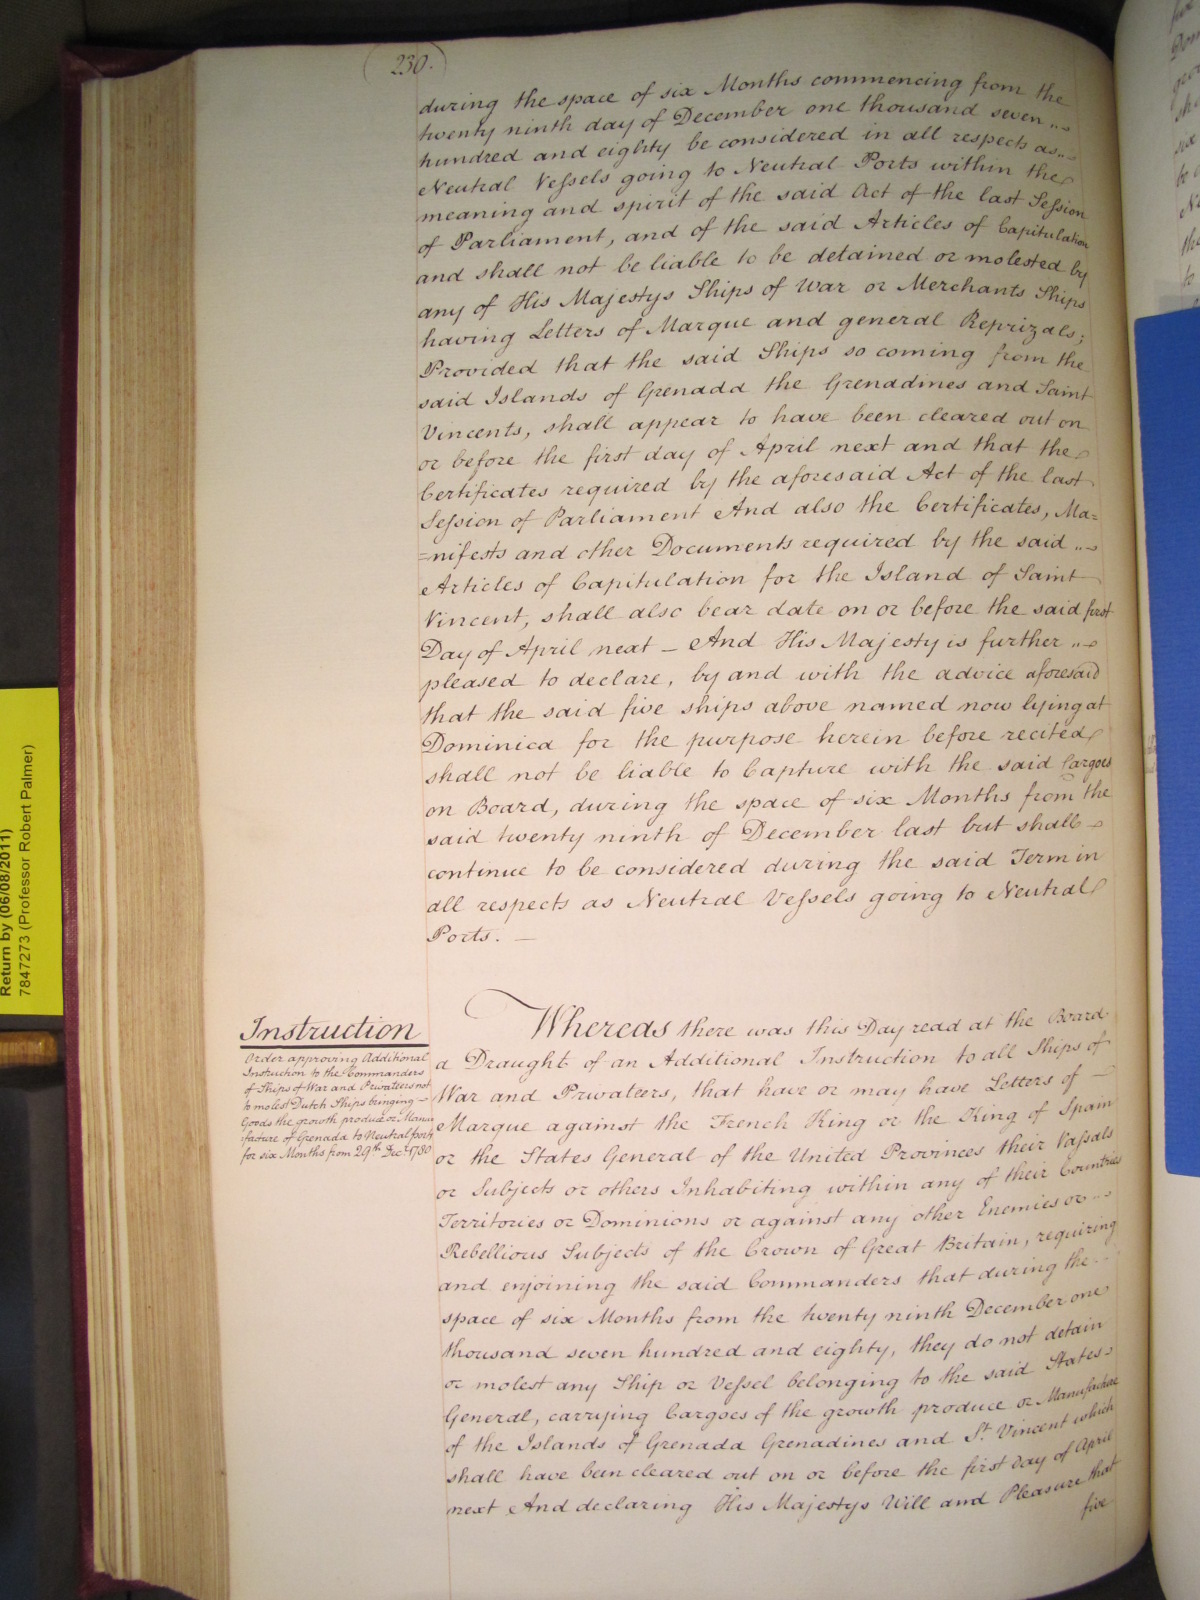 230.
during the space of six Months commencing from the
twenty ninth day of December one thousand seven
hundred and eighty be considered in all respects as
Neutral Vessels going to Neutral Ports within the
meaning and spirit of the said Act of the last Session
of Parliament, and of the said Articles of Capitulation
and shall not be liable to be detained or molested by
any of His Majestys Ships of War or Merchants Ships
having Letters of Marque and general Reprizals;
Provided that the said Ships so coming from the
said Islands of Grenada the Grenadines and Saint
Vincents, shall appear to have been cleared out on
or before the first day of April next and that the
Certificates required by the aforesaid Act of the last
Session of Parliament And also the Certificates, Ma=
=nifests and other Documents required by the said
Articles of Capitulation for the Island of Saint
Vincent, shall also bear date on or before the said first
Day of April next – And His Majesty is further
pleased to declare, by and with the advice aforesaid
that the said five ships above named now lying at
Dominica for the purpose herein before recited
shall not be liable to Capture with the said Cargoes
on Board, during the space of six Months from the
said twenty ninth of December last but shall
continue to be considered during the said Term in
all respects as Neutral Vessels going to Neutral
Ports. —
Instruction
Order approving Additional
Instruction to the Commanders
of Ships of War and Privateers not
to molest Dutch Ships bringing –
Goods the growth produce or Manu
:facture of Grenada to Neutral ports
for six Months from 29th Decr 1780
Whereas there was this Day read at the Board
a Draught of an Additional Instruction to all Ships of
War and Privateers, that have or may have Letters of —
Marque against the French King or the King of Spain
or the States General of the United Provinces their Vassals
or Subjects or others Inhabiting within any of their Countries
Territories or Dominions or against any other Enemies or
Rebellious Subjects of the Crown of Great Britain, requiring
and enjoining the said Commanders that during the
space of six Months from the twenty ninth December one
thousand seven hundred and eighty, they do not detain
or molest any Ship or Vessel belonging to the said States
General, carrying Cargoes of the growth produce or Manufacture
of the Islands of Grenada Grenadines and St. Vincent which
shall have been cleared out on or before the first Day of April
next And declaring His Majestys Will and Pleasure that
five
Return by (06/08/2011)
7847273 (Professor Robert Palmer)